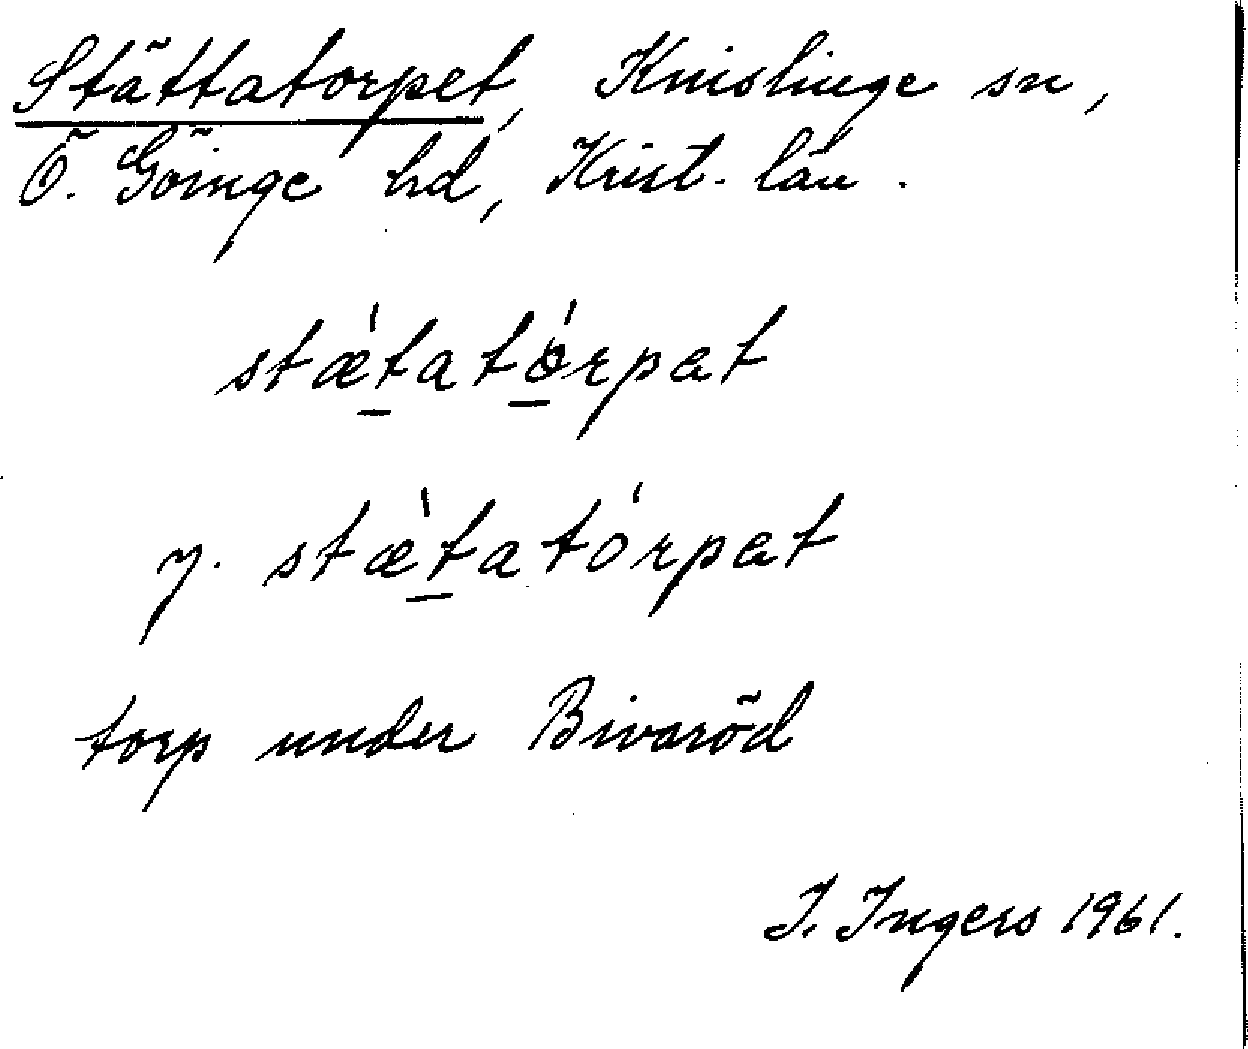 Stättatorpet, Knislinge sn,
Ö. Göinge hd, Krist. län.
stæ̀tatórpat
y. stæ̀tatórpat
torp under Bivaröd
I. Ingers 1961.